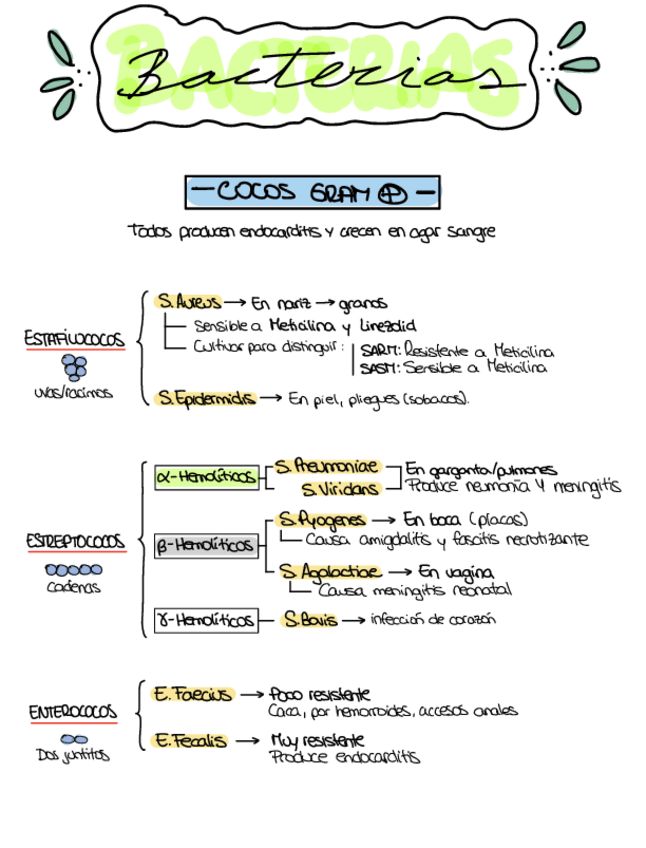 Bacterias
BACTERIAS
- COCOS GRAM ⊕ -
Todos producen endocarditis y crecen en agar sangre
ESTAFILOCOCOS
uvas/racimos
S. Aureus → En nariz → granos
Sensible a Meticilina y Linezolid
Cultivar para distinguir:
SARM: Resistente a Meticilina
SASM: Sensible a Meticilina
S. Epidermidis → En piel, pliegues (sobacos).
ESTREPTOCOCOS
cadenas
α-Hemolíticos
S. Pneumoniae
S. Viridans
En garganta/pulmones
Produce neumonía y meningitis
β-Hemolíticos
S. Pyogenes → En boca (placas)
Causa amigdalitis y fascitis necrotizante
S. Agalactiae → En vagina
Causa meningitis neonatal
γ-Hemolíticos
S. Bovis → infección de corazón
ENTEROCOCOS
Dos juntitos
E. Faecius → Poco resistente
Caca, por hemorroides, accesos anales
E. Fecalis → Muy resistente
Produce endocarditis